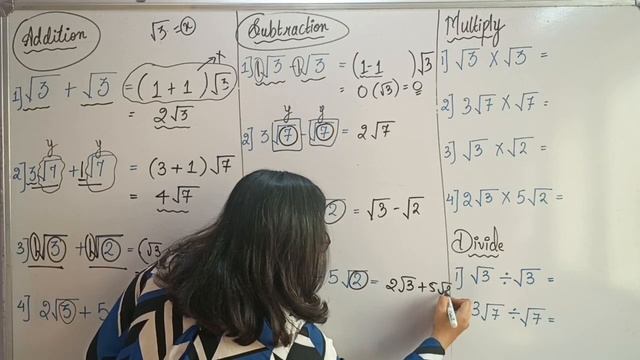 Addition
√3 = x
x
1] √3 + √3 = (1 + 1)√3
= 2√3
y y
2] 3√7 + 1√7 = (3 + 1)√7
= 4√7
3] 1√3 + 1√2 = (√3
4] 2√3 + 5
Subtraction
1] 1√3 - 1√3 = (1-1 )√3
= 0(√3) = 0
y y
2] 3√7 - √7 = 2√7
2 = √3 - √2
5√2 = 2√3 + 5√2
Multiply
1] √3 × √3 =
2] 3√7 × √7 =
3] √3 × √2 =
4] 2√3 × 5√2 =
Divide
1] √3 ÷ √3 =
3√7 ÷ √7 =